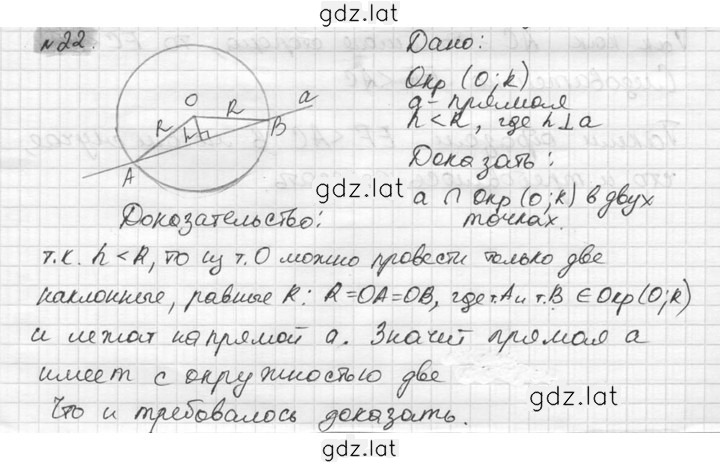 gdz.lat
№22.
Дано:
Окр (O; R)
a - прямая
h < R, где h ⊥ a
Доказать:
a ∩ Окр (O; R) в двух
точках.
O
R
R
h
a
A
B
gdz.lat
Доказательство:
т.к. h < R, то из т. O можно провести только две
наклонные, равные R: R = OA = OB, где т. A и т. B ∈ Окр (O; R)
и лежат на прямой a. Значит прямая a
имеет с окружностью две
Что и требовалось доказать.
gdz.lat
gdz.lat